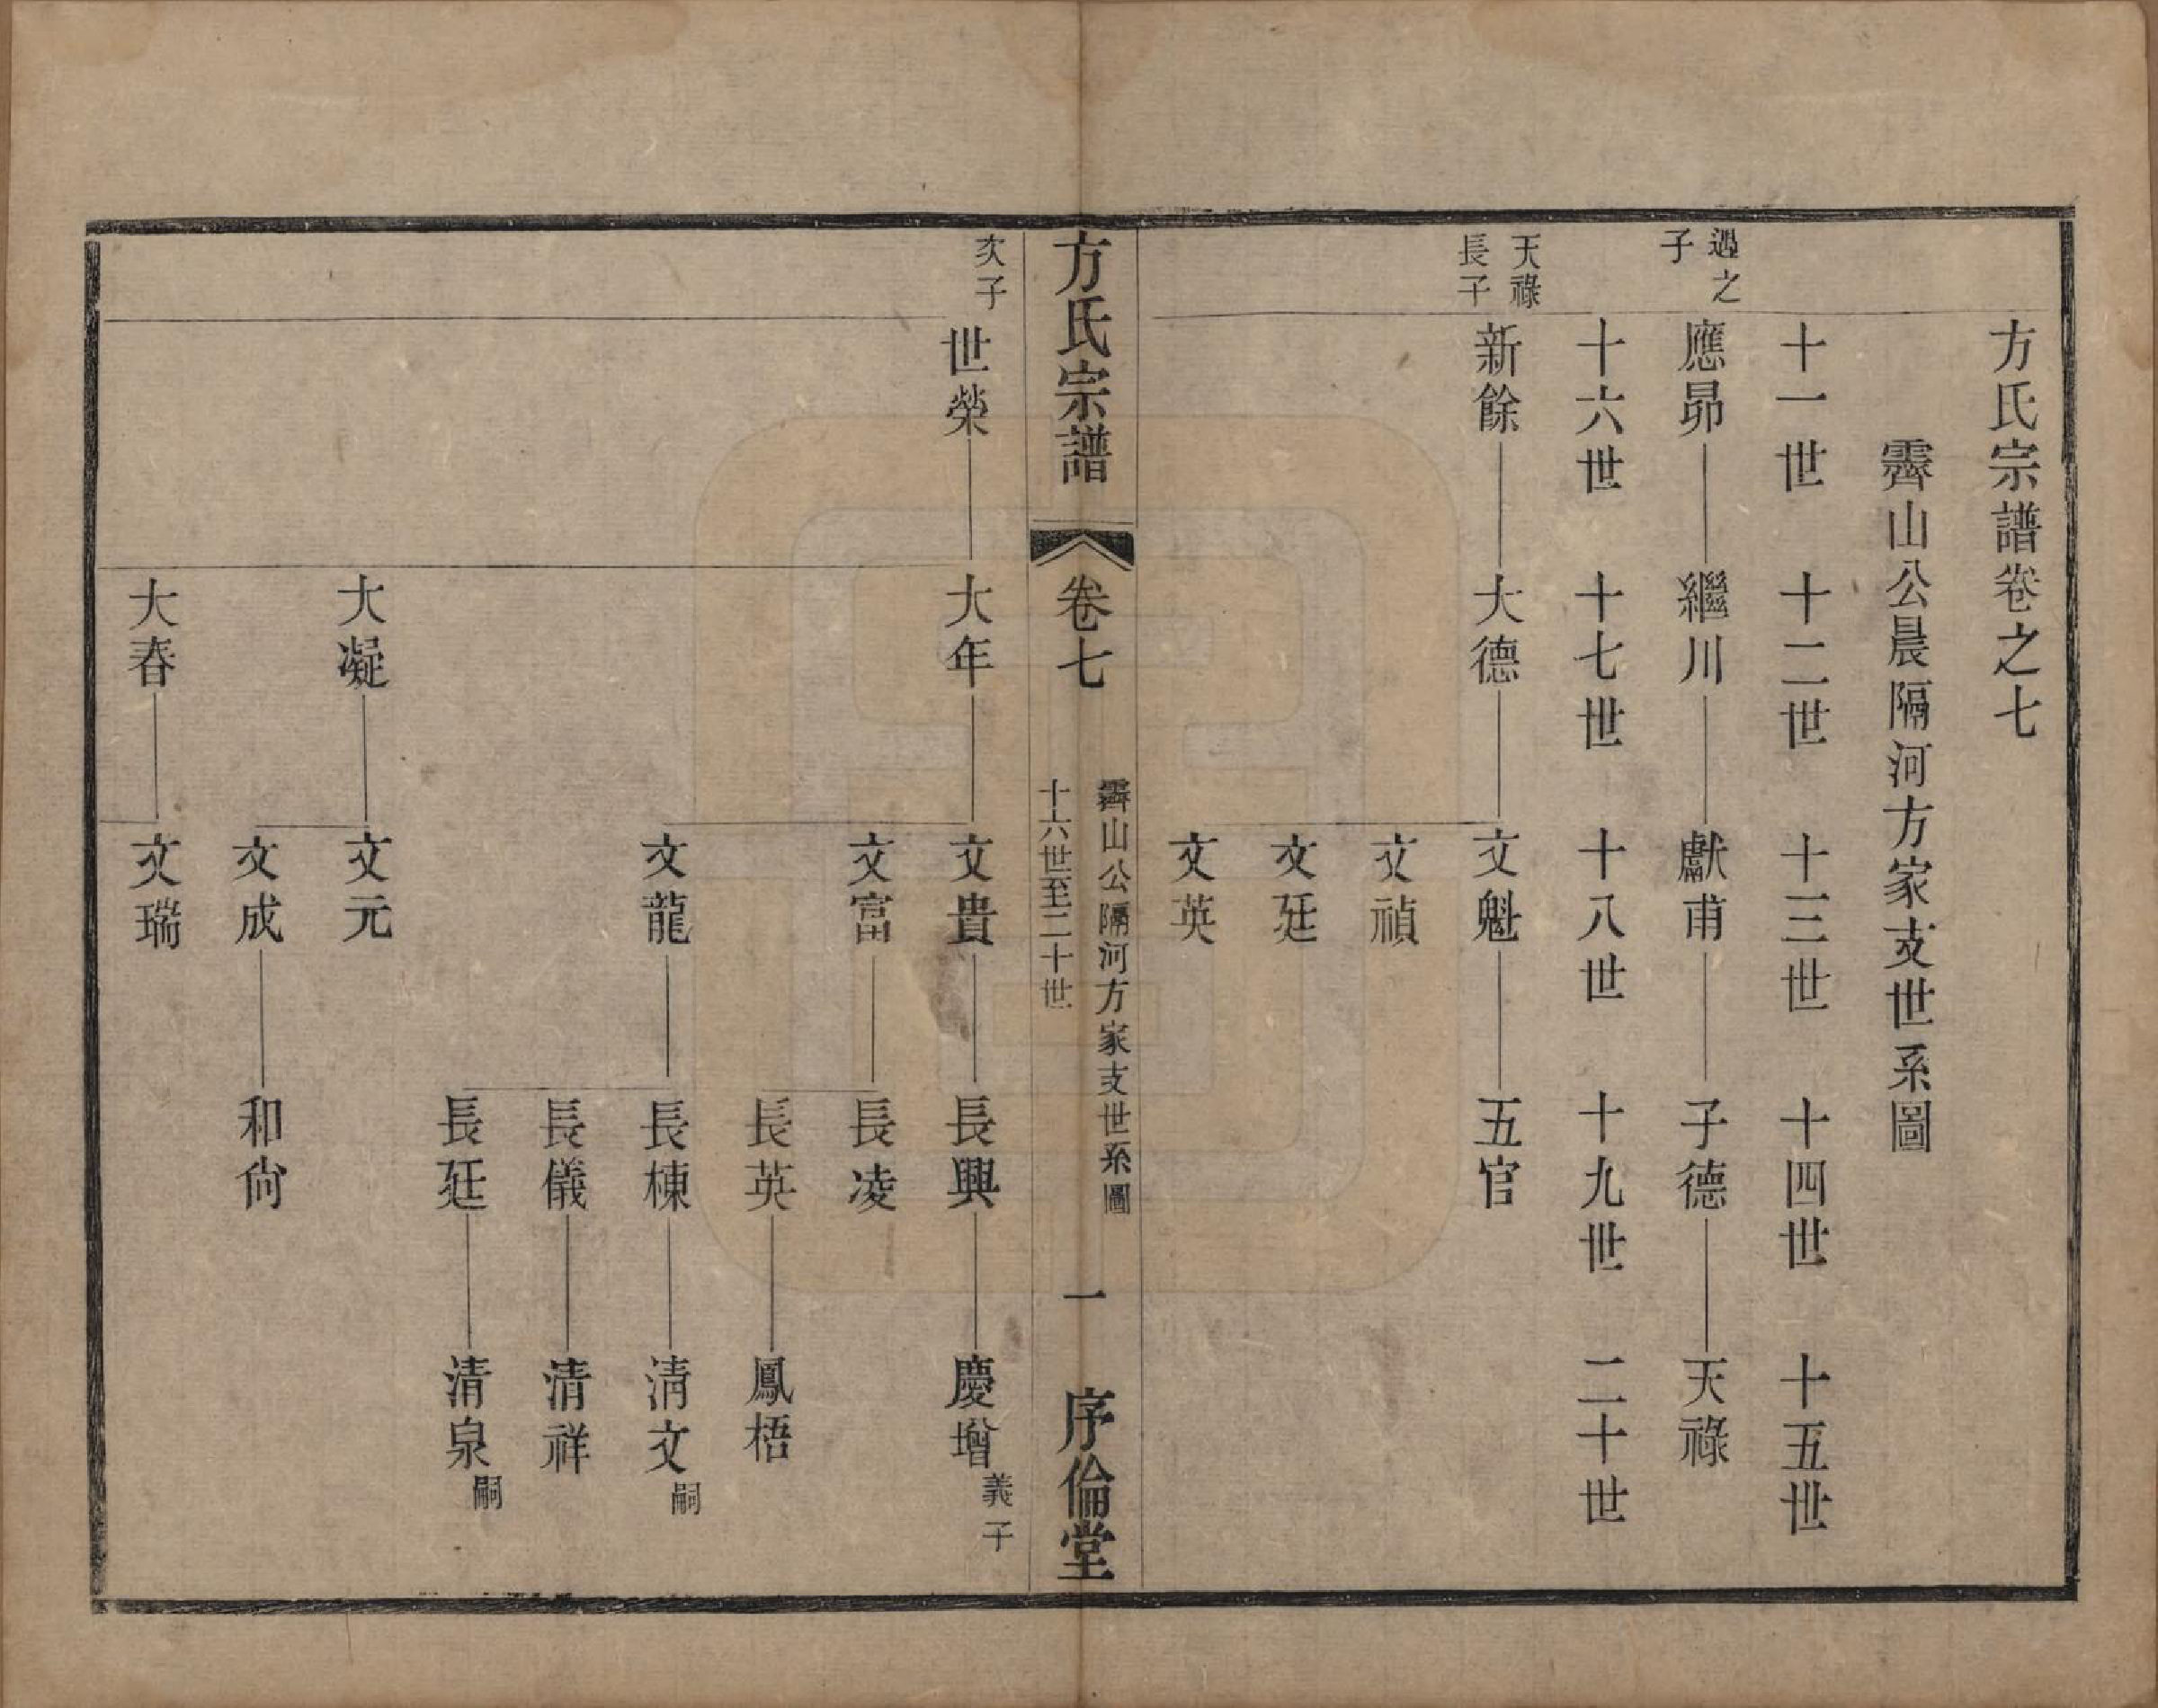 方氏宗譜卷之七
霽山公晨隔河方家支世系圖
十一世 十二世 十三世 十四世 十五世
遇之
子
應昴 繼川 獻甫 子德 天祿
十六世 十七世 十八世 十九世 二十世
天祿
長子
新餘 大德 文魁 五官
文禎
文廷
文英
方氏宗譜 卷七 霽山公隔河方家支世系圖
十六世至二十世
一 序倫堂
次子
世榮 大年 文貴 長興 慶增 義子
文富 長凌
長英 鳳梧
文龍 長棟 清文 嗣
長儀 清祥
長廷 清泉 嗣
大凝 文元
文成 和尙
大春 文瑞